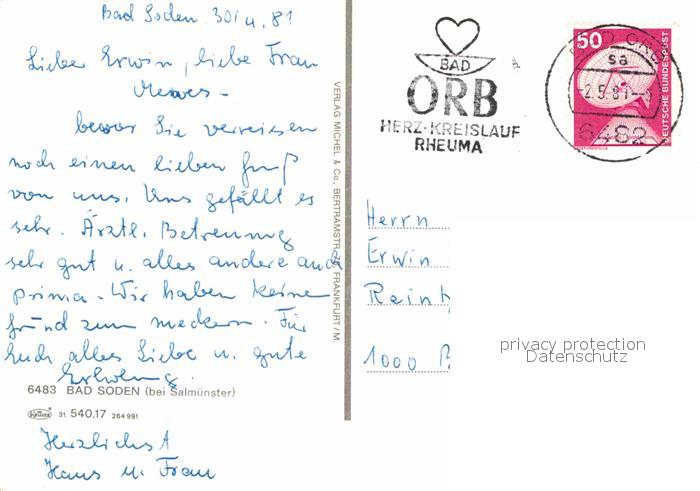 Bad Soden 30/4.81
Lieber Erwin, liebe Frau
bevor Sie verreisen
noch einen lieben Gruß
von uns. Uns gefällt es
sehr. Ärztl. Betreuung
sehr gut u. alles andere auch
prima. Wir haben keinen
Grund zum meckern. Für
Euch alles Liebe u. gute
Erholung.
6483 BAD SODEN (bei Salmünster)
31. 540.17 264 991
Herzlichst
Hans u. Frau
VERLAG MICHEL & Co., BERTRAMSTR. FRANKFURT/M.
BAD
ORB
HERZ-KREISLAUF
RHEUMA
BAD ORB
sa
-2.5.81-
6482
50
DEUTSCHE BUNDESPOST
Herrn
Erwin
Reint
1000 B
privacy protection
Datenschutz